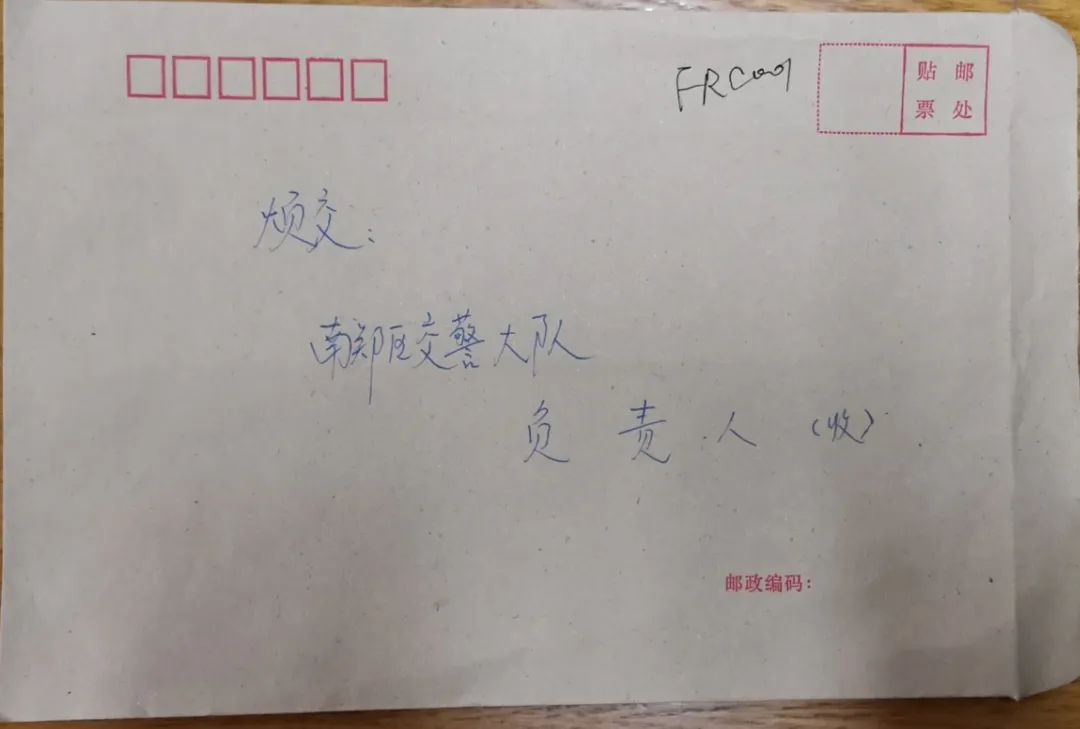 FRC001
贴 邮
票 处
烦交:
南郑区交警大队
负 责 人 (收)
邮政编码: